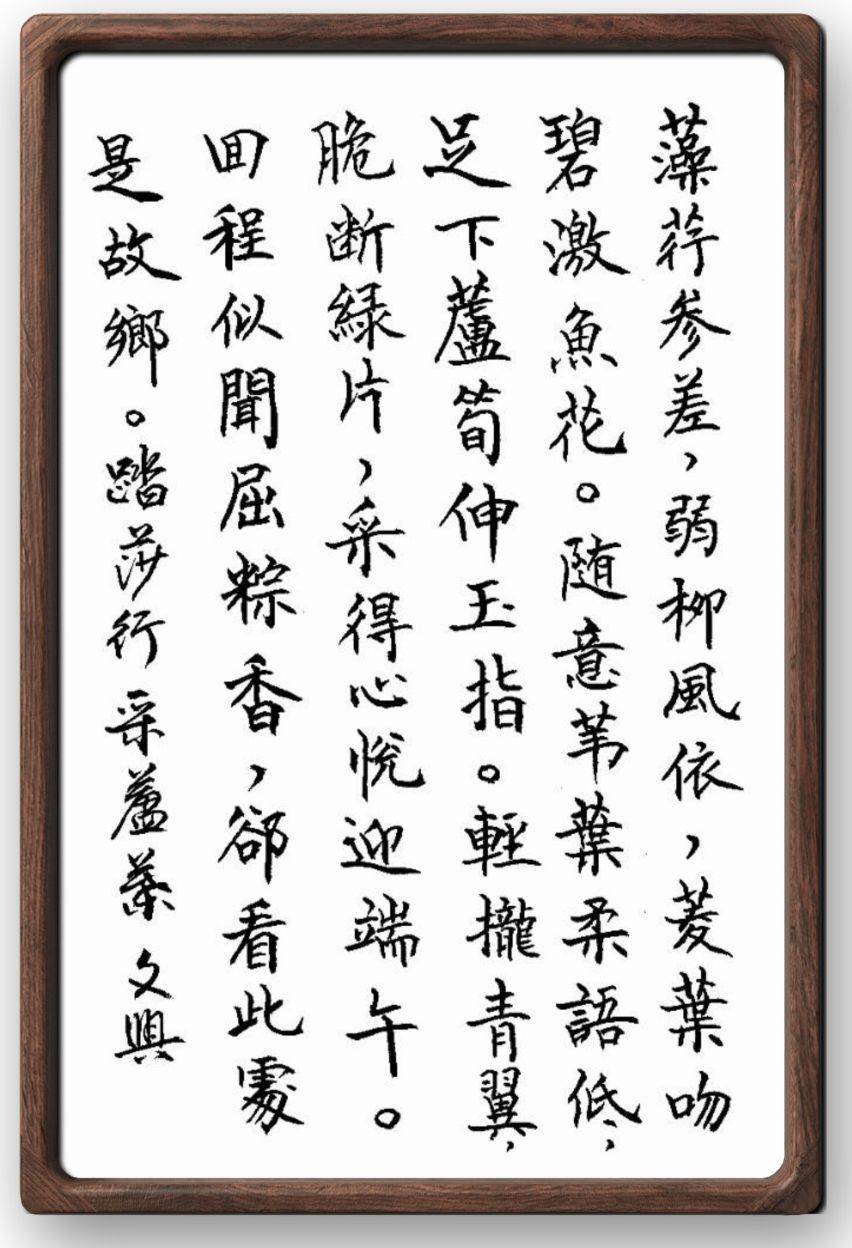 藻荇參差，弱柳風依，菱葉吻
碧激魚花。随意苇葉柔語低，
足下蘆筍伸玉指。輕攏青翼，
脆断綠片，采得心悅迎端午。
回程似聞屈粽香，郤看此處
是故鄉。踏莎行 采蘆葉 文興